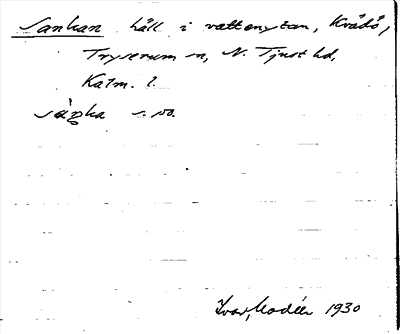 Sankan häll i vattenytan, Kvädö,
Tryserum sn, N. Tjust hd,
Kalm. l.
sáŋka s. va.
Ivar Modéer 1930